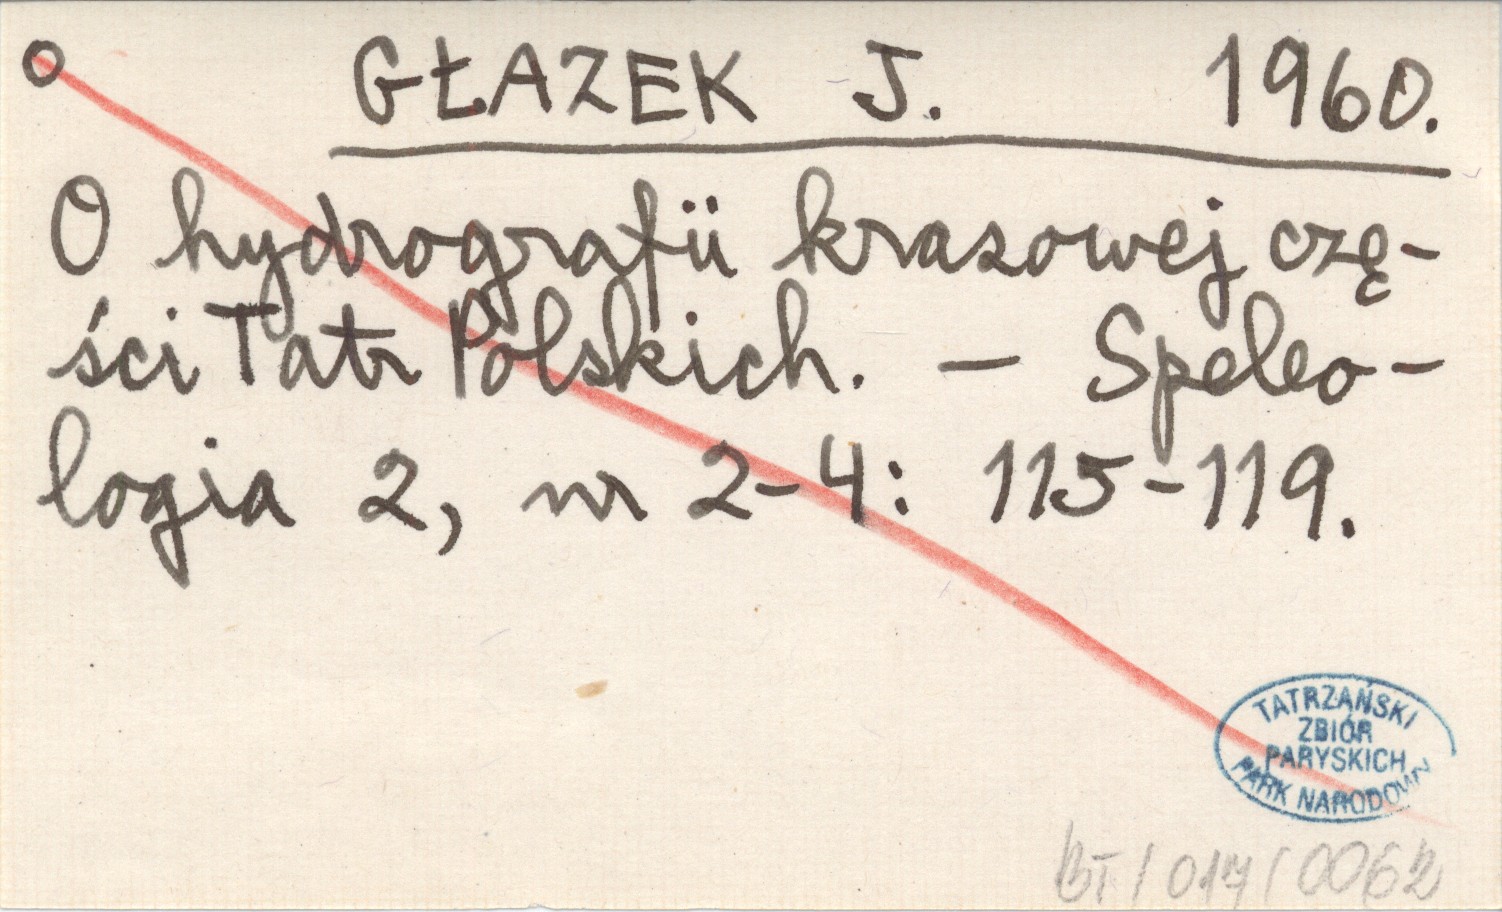 o GŁAZEK J. 1960.
O hydrografii krasowej czę-
ści Tatr Polskich. — Speleo-
logia 2, nr 2-4: 115-119.
TATRZAŃSKI
ZBIÓR
PARYSKICH
PARK NARODOWY
BT/017/0062